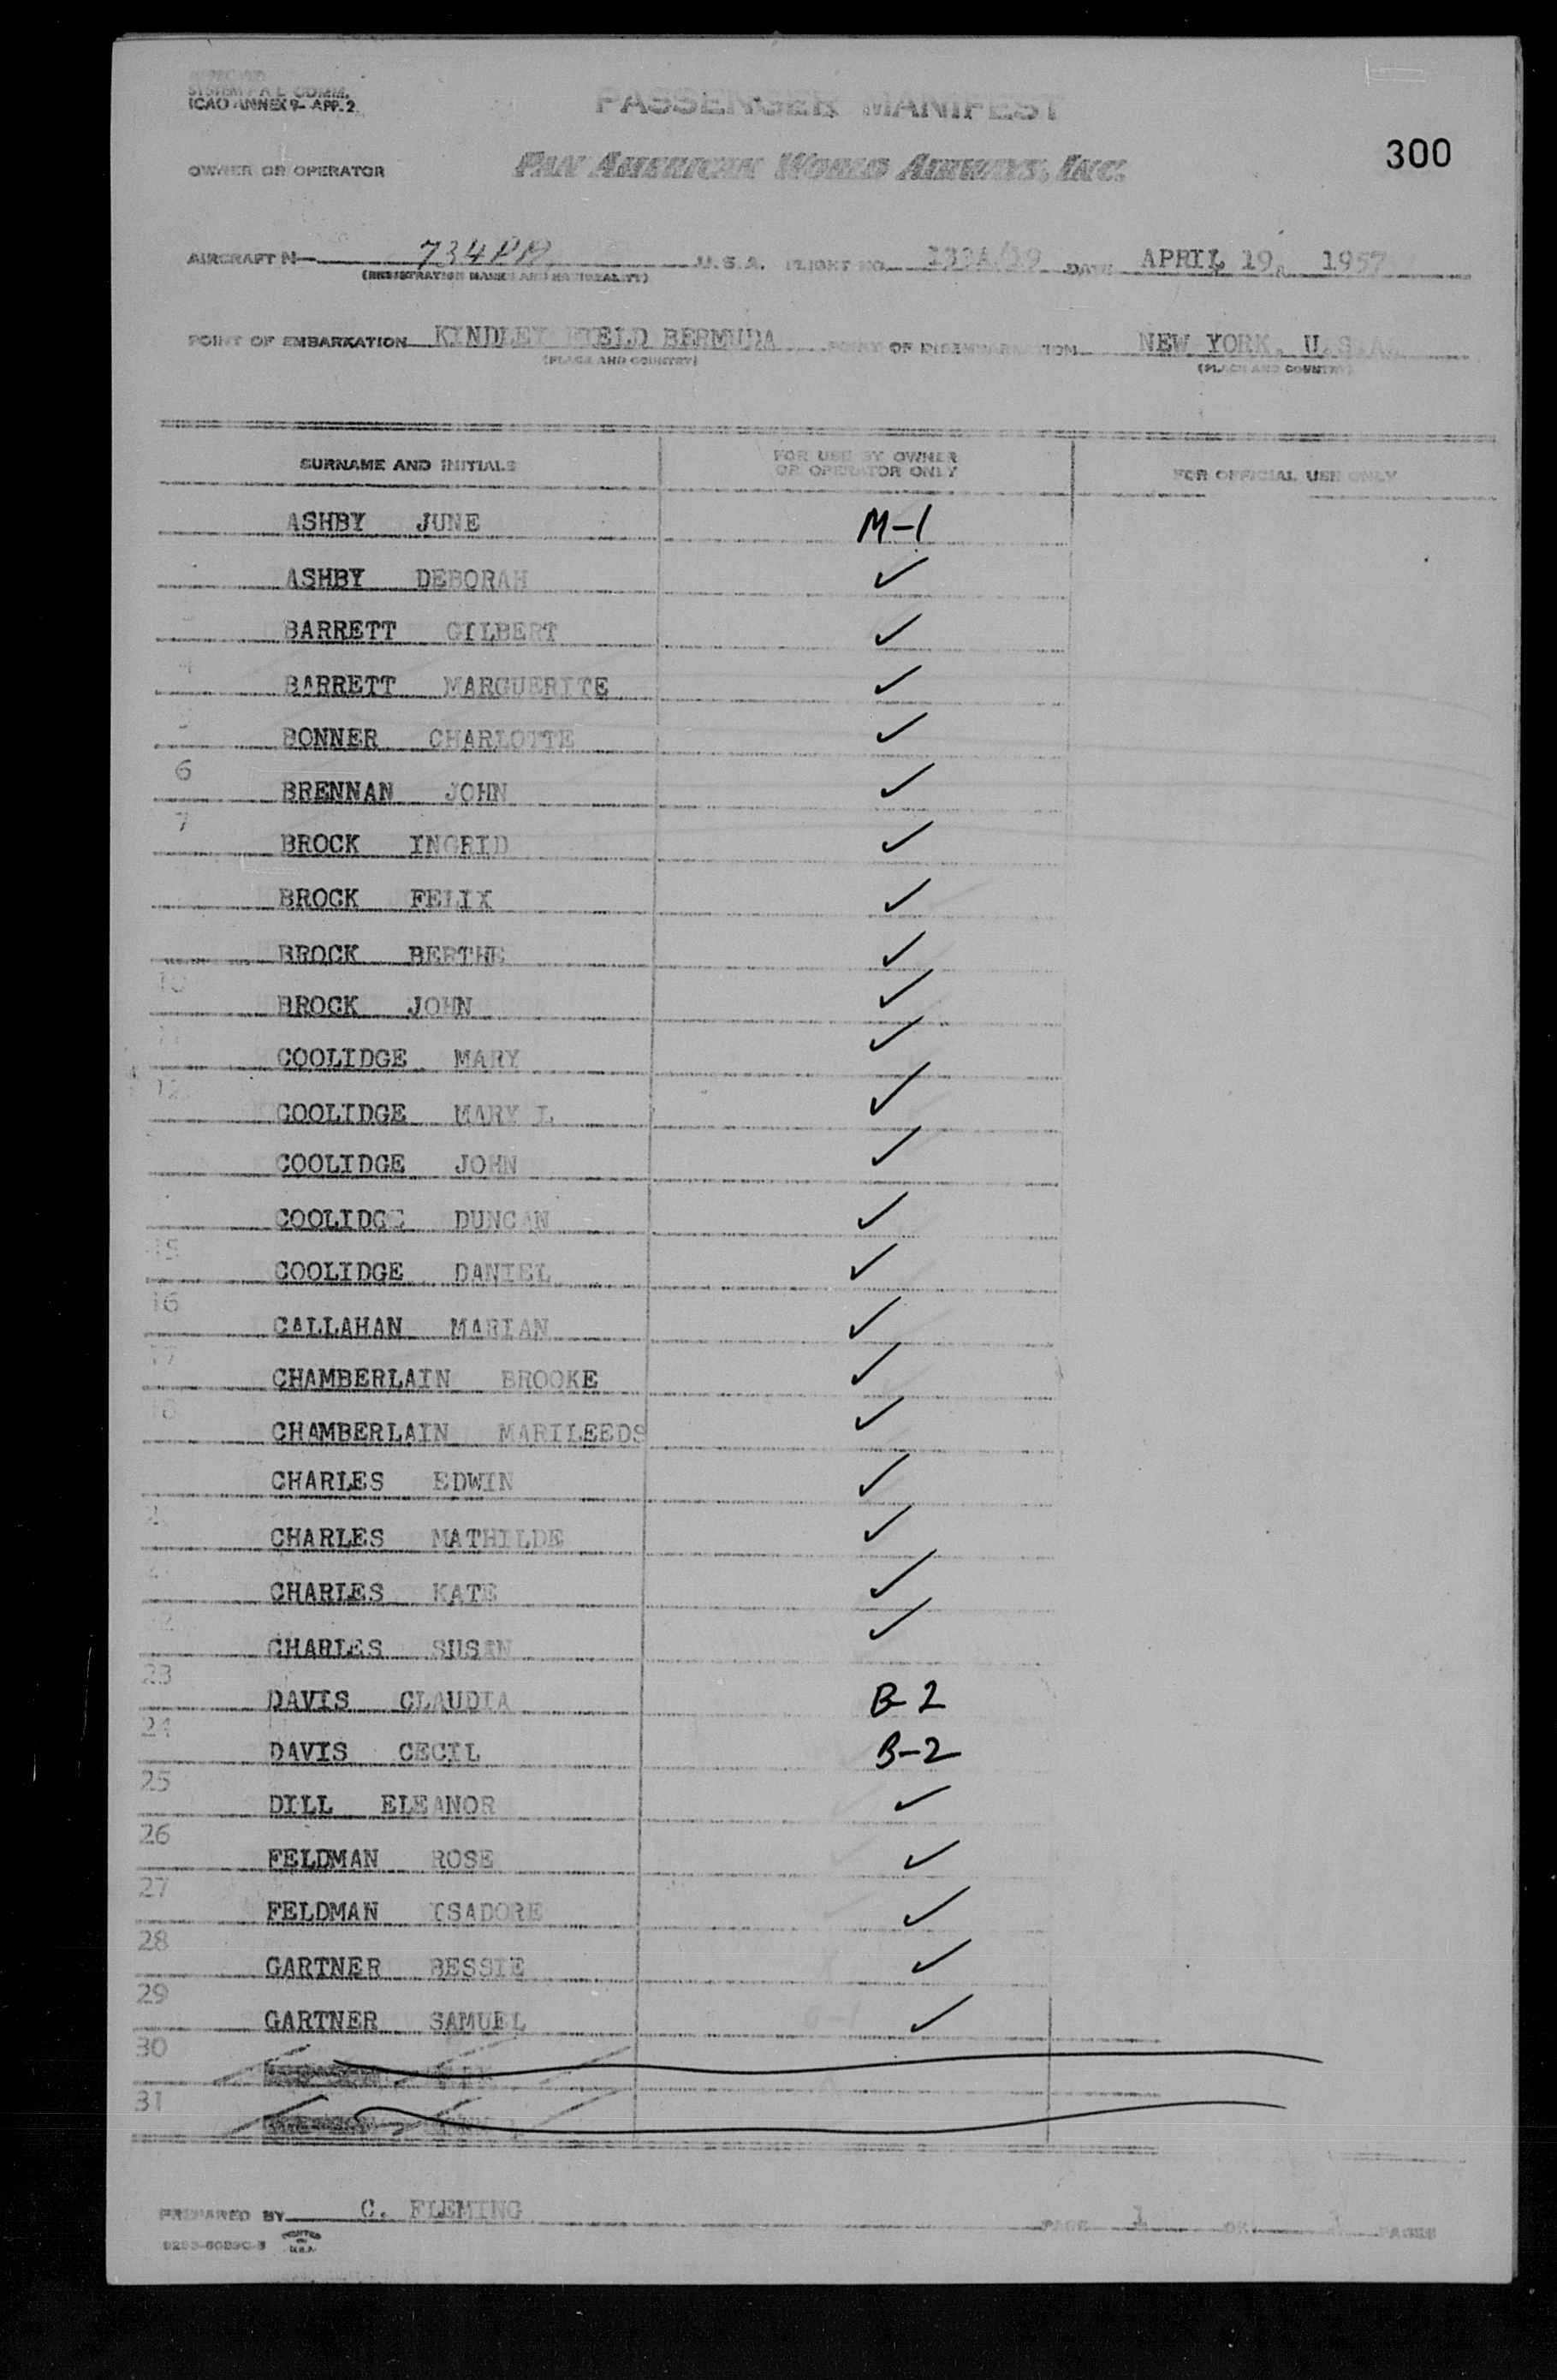 SYSTEM P A L COMM.
ICAO ANNEX 9- APP. 2
PASSENGER MANIFEST
300
OWNER OR OPERATOR
PAN AMERICAN WORLD AIRWAYS, INC.
AIRCRAFT N 734PA U.S.A. FLIGHT NO. 133A/19 DATE APRIL 19, 1957
(REGISTRATION MARKS AND NATIONALITY)
POINT OF EMBARKATION KINDLEY FIELD BERMUDA POINT OF DISEMBARKATION NEW YORK, U.S.A.
(PLACE AND COUNTRY) (PLACE AND COUNTRY)
SURNAME AND INITIALS FOR USE BY OWNER OR OPERATOR ONLY FOR OFFICIAL USE ONLY
ASHBY JUNE M-1
ASHBY DEBORAH ✓
BARRETT GILBERT ✓
4 BARRETT MARGUERITE ✓
BONNER CHARLOTTE ✓
6 BRENNAN JOHN ✓
7 BROCK INGRID ✓
BROCK FELIX ✓
BROCK BERTHE ✓
10 BROCK JOHN ✓
11 COOLIDGE MARY ✓
12 COOLIDGE MARY L ✓
COOLIDGE JOHN ✓
COOLIDGE DUNCAN ✓
15 COOLIDGE DANIEL ✓
16 CALLAHAN MARIAN ✓
17 CHAMBERLAIN BROOKE ✓
18 CHAMBERLAIN MARILEEDS ✓
CHARLES EDWIN ✓
2 CHARLES MATHILDE ✓
CHARLES KATE ✓
22 CHARLES SUSAN ✓
23 DAVIS CLAUDIA B-2
24 DAVIS CECIL B-2
25 DILL ELEANOR ✓
26 FELDMAN ROSE ✓
27 FELDMAN ISADORE ✓
28 GARTNER BESSIE ✓
29 GARTNER SAMUEL ✓
30
31
PREPARED BY C. FLEMING PAGE 1 OF PAGES
PRINTED IN U.S.A.